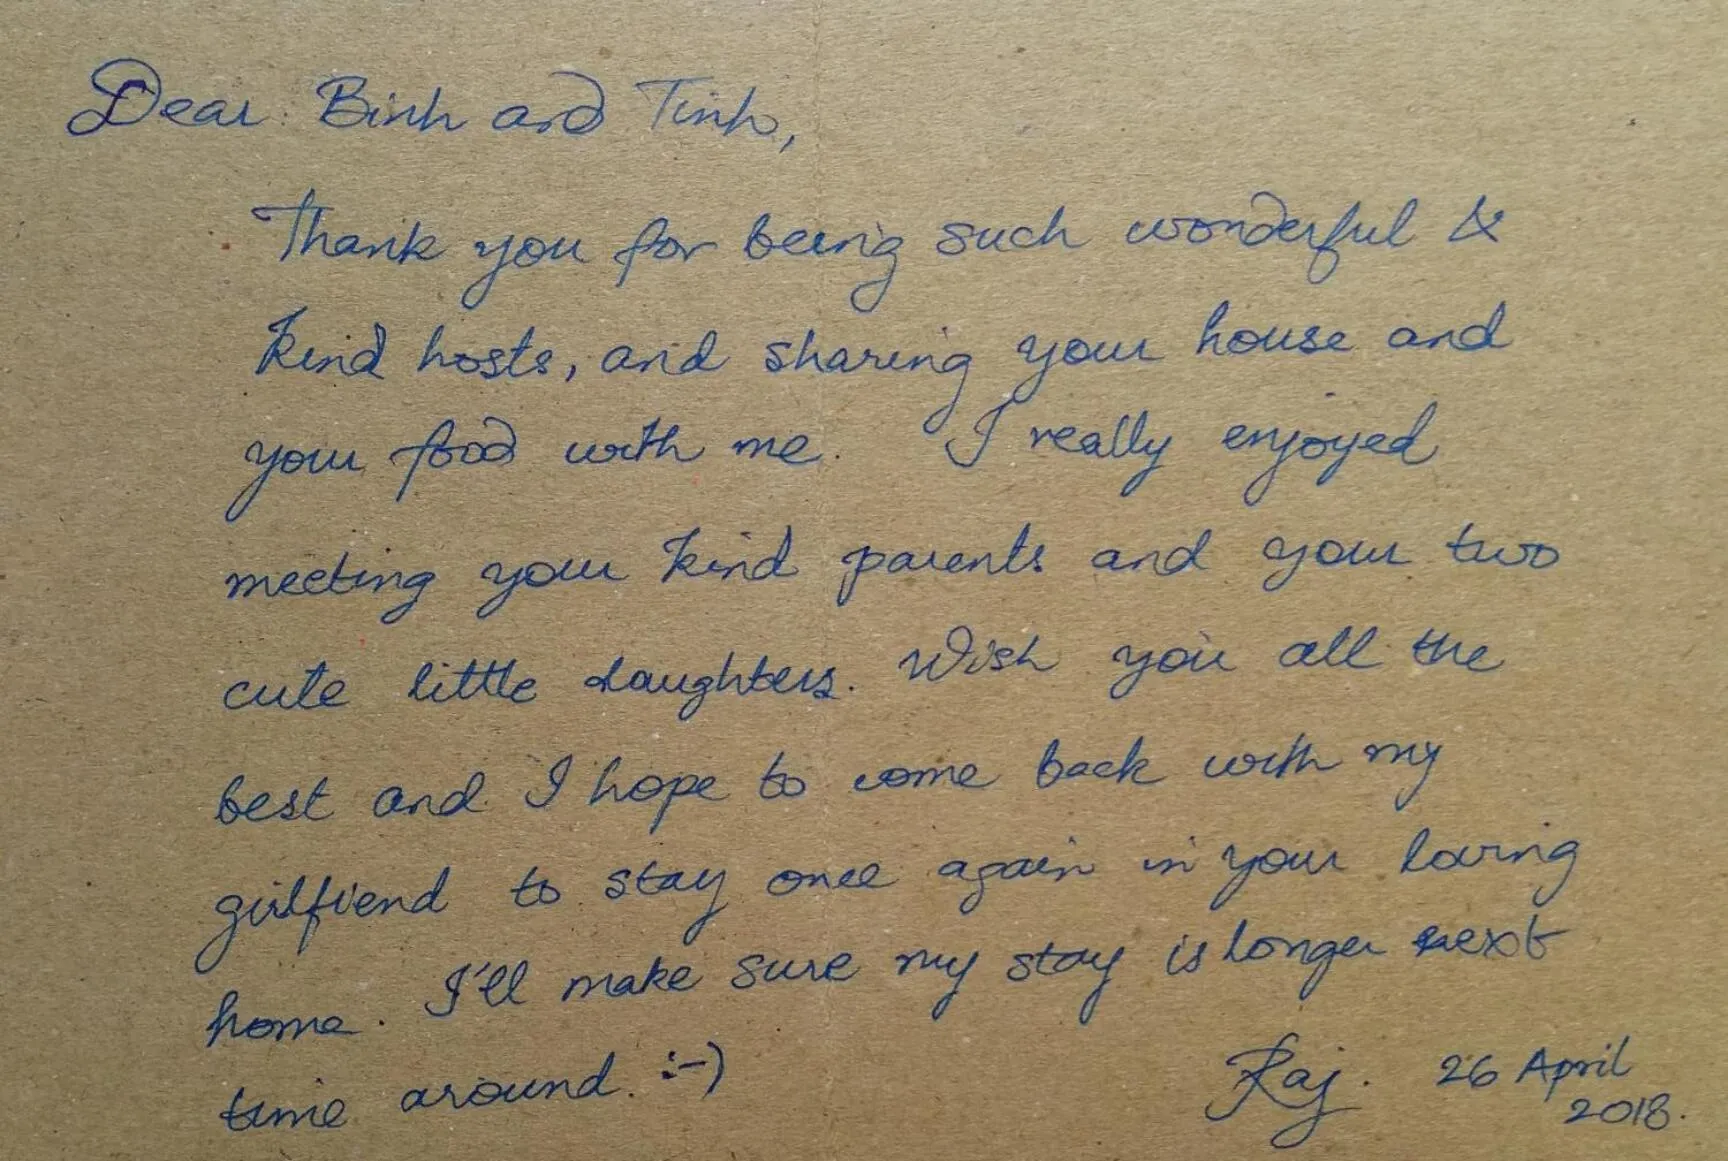 Dear Binh and Tinh,
Thank you for being such wonderful &
kind hosts, and sharing your house and
your food with me. I really enjoyed
meeting your kind parents and your two
cute little daughters. Wish you all the
best and I hope to come back with my
girlfiend to stay once again in your loving
home. I'll make sure my stay is longer next
time around. :-)
Raj. 26 April
2018.